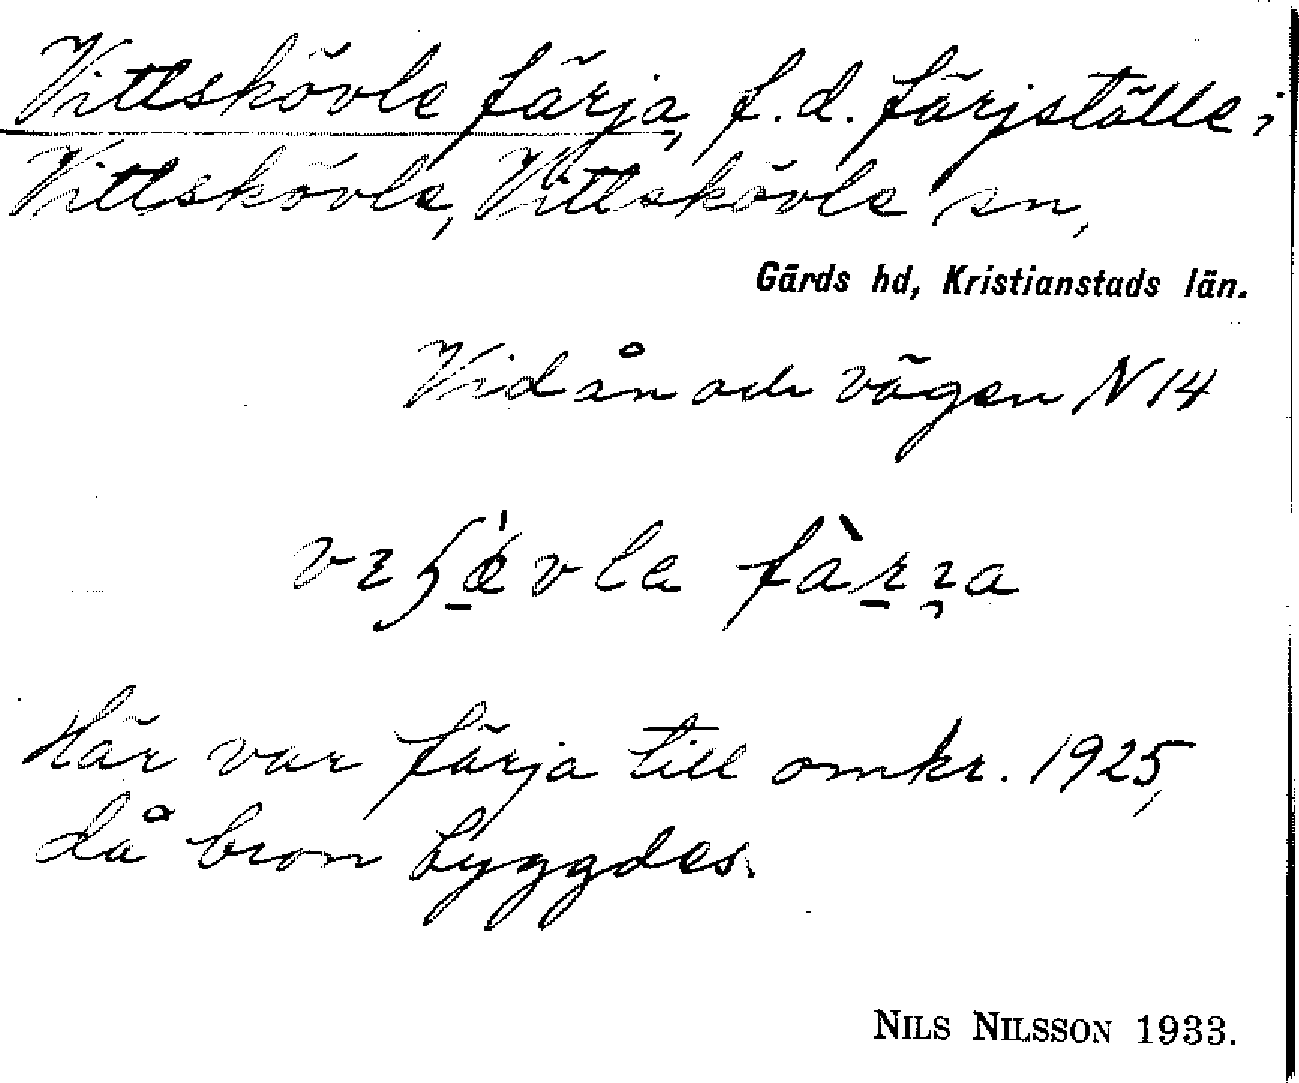 Vittskövle färja, f.d. färjställe i
Vittskövle, Vittskövle sn,
Gärds hd, Kristianstads län.
Vid ån och vägen N 14
fàrɿa
Här var färja till omkr. 1925,
då bron byggdes.
NILS NILSSON 1933.